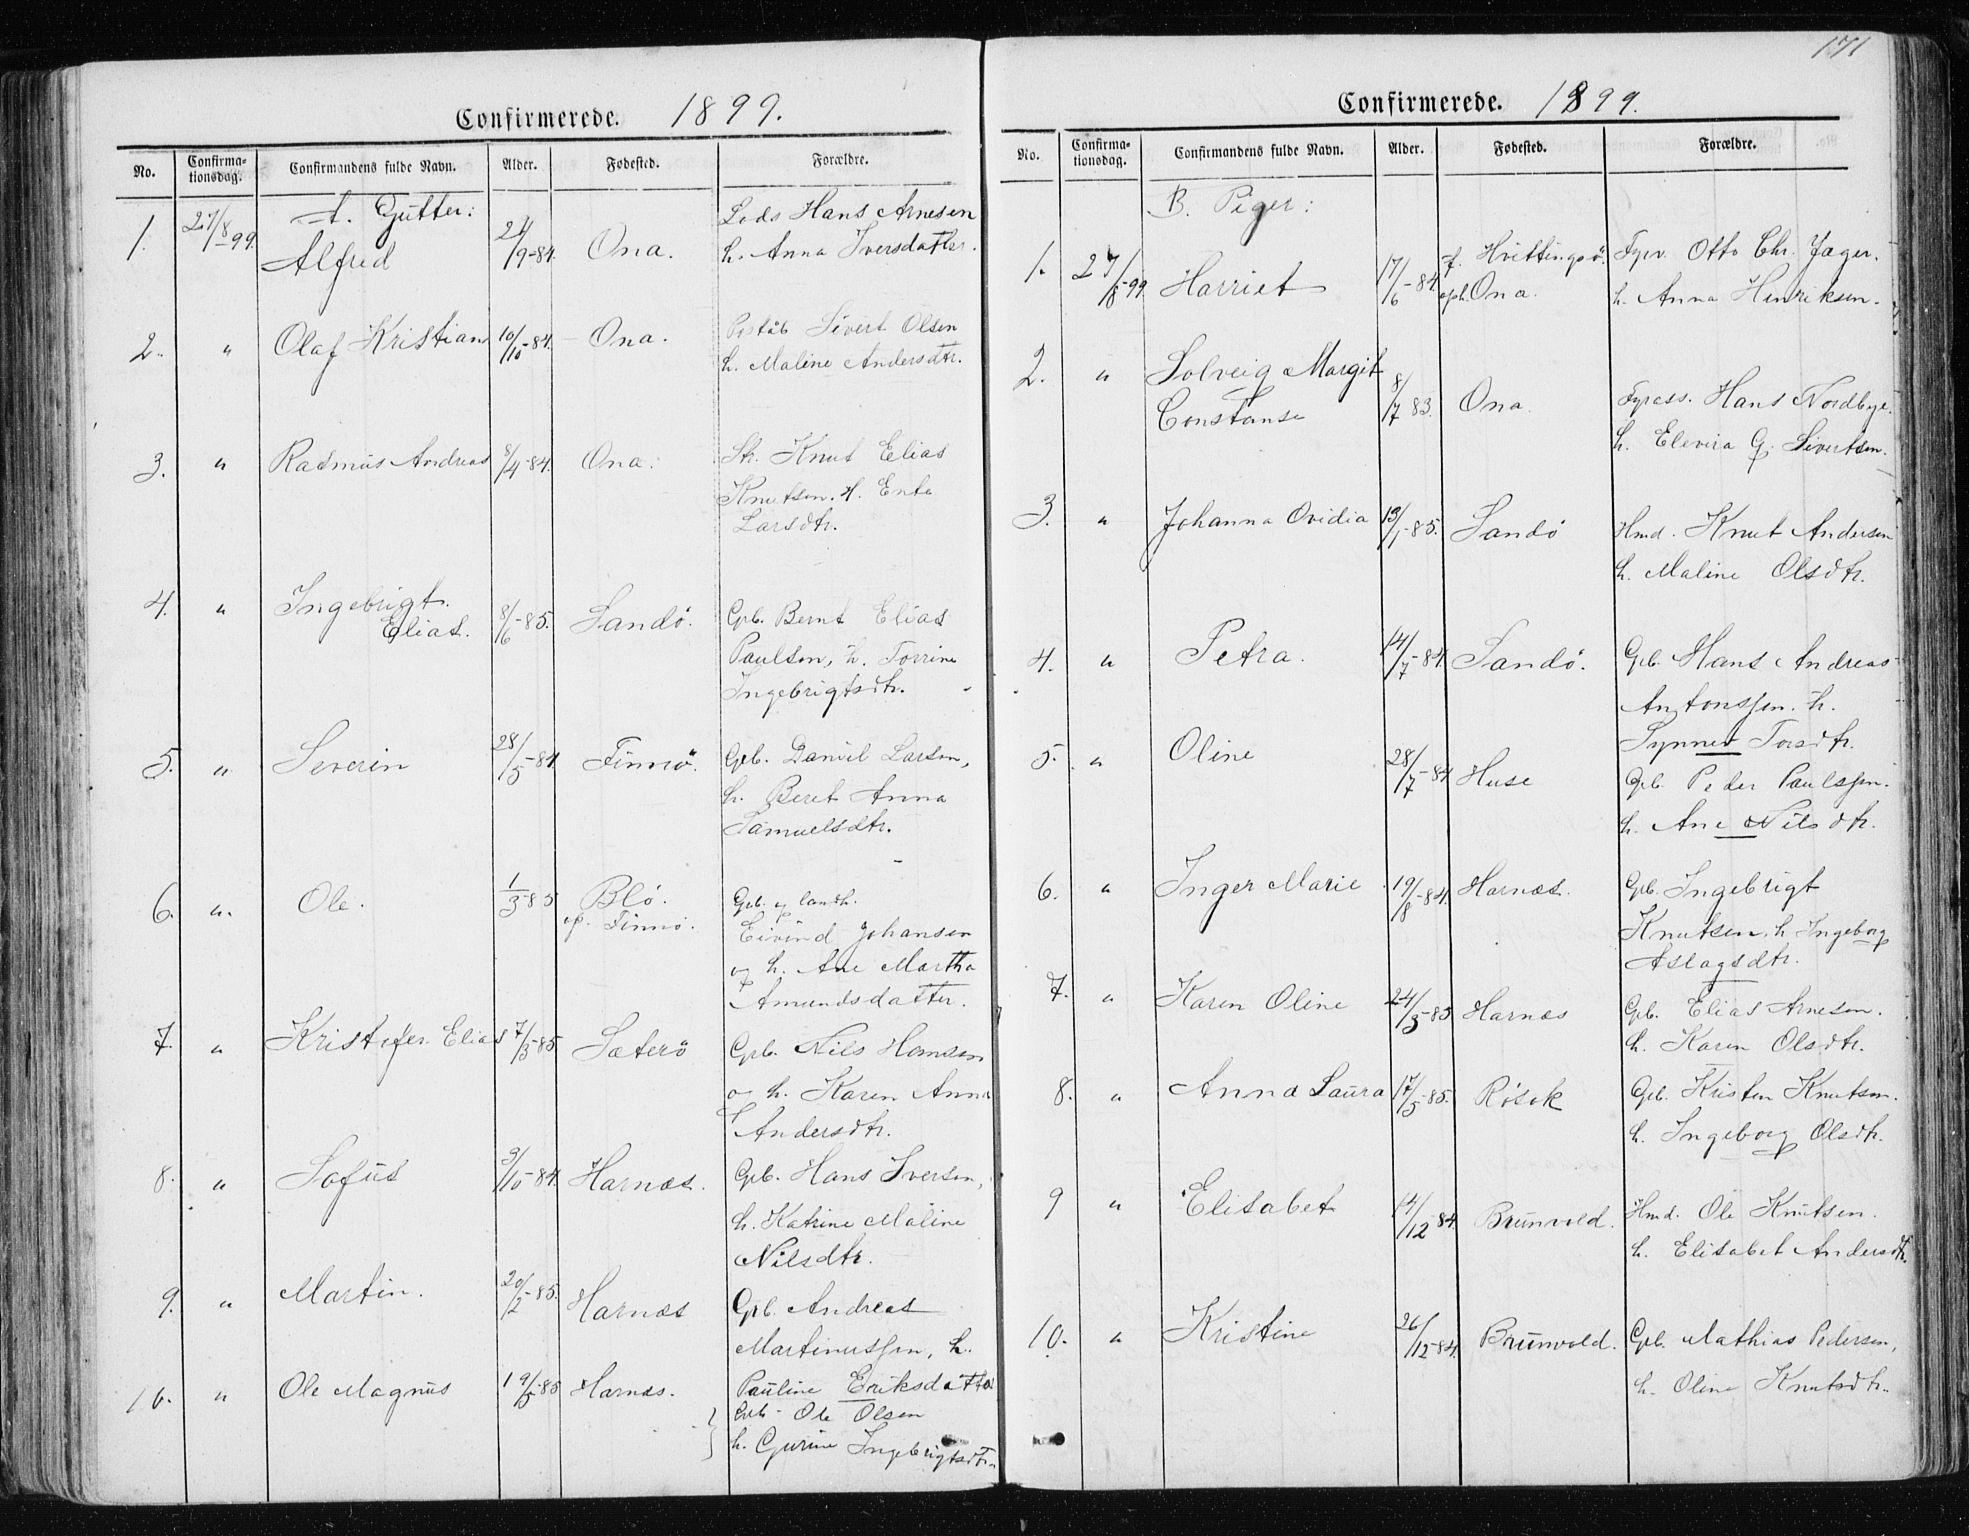 171
Confirmerede. 1899.
No.
Confirma-
tionsdag.
Confirmandens fulde Navn.
Alder.
Fødested.
Forældre.
A. Gutter:
1. 27/8-99. Alfred 24/9-84. Ona. Lods Hans Arnesen
h. Anna Iversdatter.
2. " Olaf Kristian 10/10-84. Ona. Sivert Olsen
h. Maline Andersdtr.
3. " Rasmus Andreas 8/4-84. Ona. Knut Elias
Knutsen. H.
Larsdtr.
4. " Ingebrigt
Elias. 8/6-85. Sandö. Gb. Bernt Elias
Paulsen, h. Torrine
Ingebrigtsdtr.
5. " Severin 28/5-84. Finnö. Gb. Daniel Larsen,
h. Beret Anna
Samuelsdtr.
6. " Ole. 1/3 85 Blö.
op. Finnö. Gb. og landh.
Eivind Johansen
og h. Ane Martha
Amundsdatter.
7. " Kristofer Elias 7/3-85 Sæterö Gb. Nils Hansen
og h. Karen Anna
Andersdtr.
8. " Sofus 9/10-84. Harnæs. Gb. Hans Iversen,
h. Katrine Maline
Nilsdtr.
9. " Martin. 20/2-85. Harnæs Gb. Andreas
Martinussen, h.
Pauline Eriksdatter
10. " Ole Magnus 19/5-85 Harnæs. Gb. Ole Olsen
h. Gurine Ingebrigtsdtr.
Confirmerede. 1899.
No.
Confirma-
tionsdag.
Confirmandens fulde Navn.
Alder.
Fødested.
Forældre.
B. Piger:
1. 27/8-99 Harriet 17/6-84. f. Hvittingsö.
oph. Ona. Fyrv. Otto Chr. Jæger.
h. Anna Henriksen.
2. " Solveig Margit
Constanse 8/7 83. Ona. Fyrass. Hans Nordbye.
h. Elevira G. Sivertsen.
3. " Johanna Ovidia 13/1-85. Sandö Hmd. Knut Andersen
h. Maline Olsdtr.
4. " Petra. 14/7-84. Sandö. Gb. Hans Andreas
Antonssen. h.
Synnev Torsdtr.
5. " Oline 28/7-84 Huse Gb. Peder Paulssen.
h. Ane Nilsdtr.
6. " Inger Marie 19/8-84. Harnæs. Gb. Ingebrigt
Knutsen, h. Ingeborg
Aslagsdtr.
7. " Karen Oline 24/3-85 Harnæs Gb. Elias Arnesen.
h. Karen Olsdtr.
8. " Anna Laura 17/5-85. Rösok Gb. Kristen Knutsen.
h. Ingeborg Olsdtr.
9 " Elisabet 14/12 84. Brunvold. Hmd. Ole Knutsen.
h. Elisabet Andersdtr.
10. " Kristine 26/12-84. Brunvold. Gb. Mathias Pedersen,
h. Oline Knutsdtr.